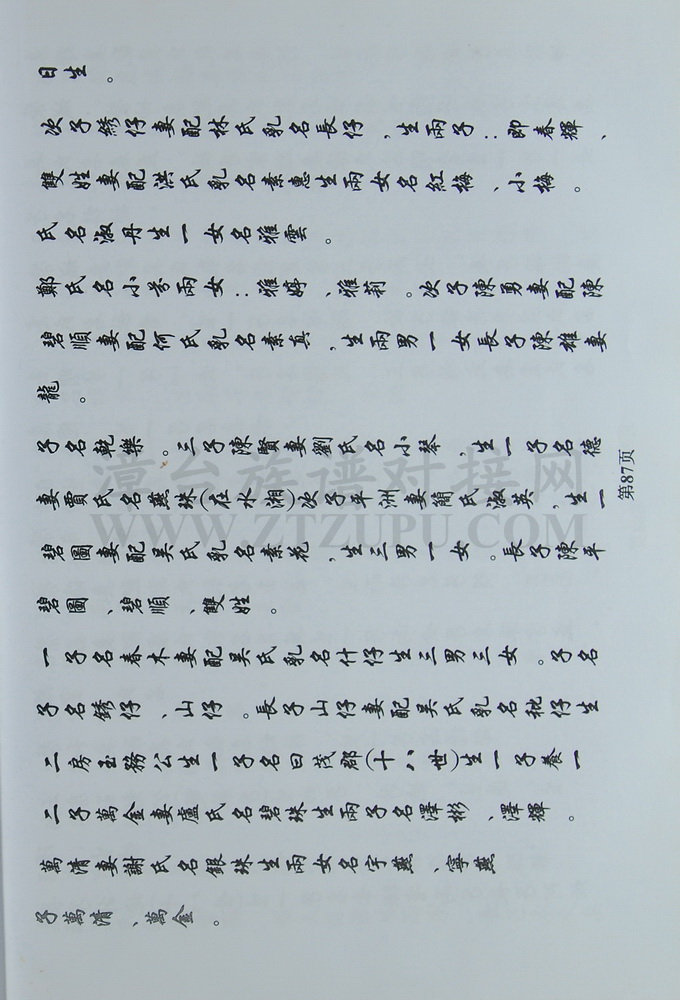 子萬清、萬金。
萬清妻謝氏名銀珠生兩女名宇燕、寧燕
二子萬金妻盧氏名碧珠生兩子名澤彬、澤輝。
二房玉務公生一子名曰茂郡(十八世)生一子養一
子名銹仔、山仔。長子山仔妻配吳氏乳名枇仔生
一子名春木妻配吳氏乳名什仔生三男三女。子名
碧圖、碧順、雙姓。
碧圖妻配吳氏乳名素花,生三男一女。長子陳平
妻賈氏名燕珠(在水湘)次子平洲妻簡氏淑英,生一
子名乾樂。三子陳賢妻劉氏名小琴,生一子名德
龍。
碧順妻配何氏乳名素真,生兩男一女長子陳雄妻
鄭氏名小芬兩女:雅婷、雅莉。次子陳勇妻配陳
氏名淑丹生一女名雅雲。
雙姓妻配洪氏乳名素惠生兩女名紅梅、小梅。
次子銹仔妻配林氏乳名長仔,生兩子:即春輝、
日生。
第87页
漳台族谱对接网
WWW.ZTZUPU.COM